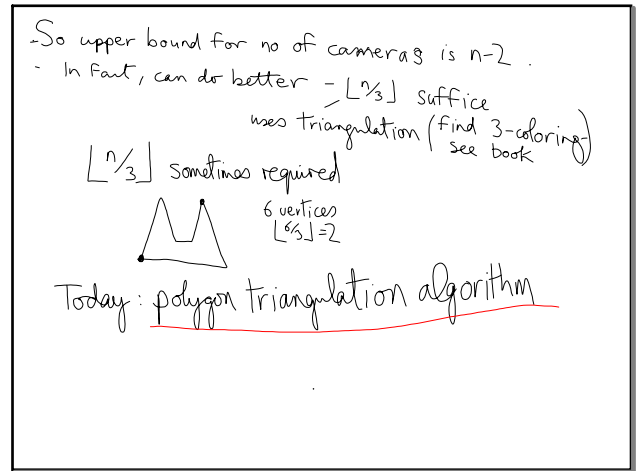 - So upper bound for no of cameras is n-2.
- In fact, can do better - ⌊n/3⌋ suffice
uses triangulation (find 3-coloring-
see book)
⌊n/3⌋ sometimes required
6 vertices
⌊6/3⌋=2
Today: polygon triangulation algorithm